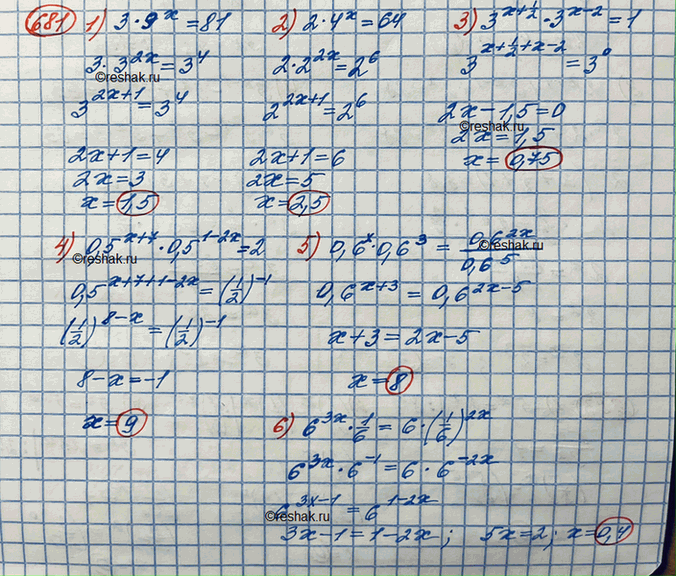 681 1) 3·9^x = 81
3·3^{2x} = 3^4
©reshak.ru
3^{2x+1} = 3^4
2x+1=4
2x=3
x=1,5
2) 2·4^x = 64
2·2^{2x} = 2^6
2^{2x+1} = 2^6
2x+1=6
2x=5
x=2,5
3) 3^{x+\frac{1}{2}}·3^{x-2} = 1
3^{x+\frac{1}{2}+x-2} = 3^0
2x-1,5=0
©reshak.ru
2x=1,5
x=0,75
4) 0,5^{x+7}·0,5^{1-2x}=2
©reshak.ru
0,5^{x+7+1-2x} = (\frac{1}{2})^{-1}
(\frac{1}{2})^{8-x} = (\frac{1}{2})^{-1}
8-x=-1
x=9
5) 0,6^x·0,6^3 = \frac{0,6^{2x}}{0,6^5}
©reshak.ru
0,6^{x+3} = 0,6^{2x-5}
x+3=2x-5
x=8
6) 6^{3x}·\frac{1}{6} = 6·(\frac{1}{6})^{2x}
6^{3x}·6^{-1} = 6·6^{-2x}
6^{3x-1} = 6^{1-2x}
©reshak.ru
3x-1=1-2x; 5x=2; x=0,4